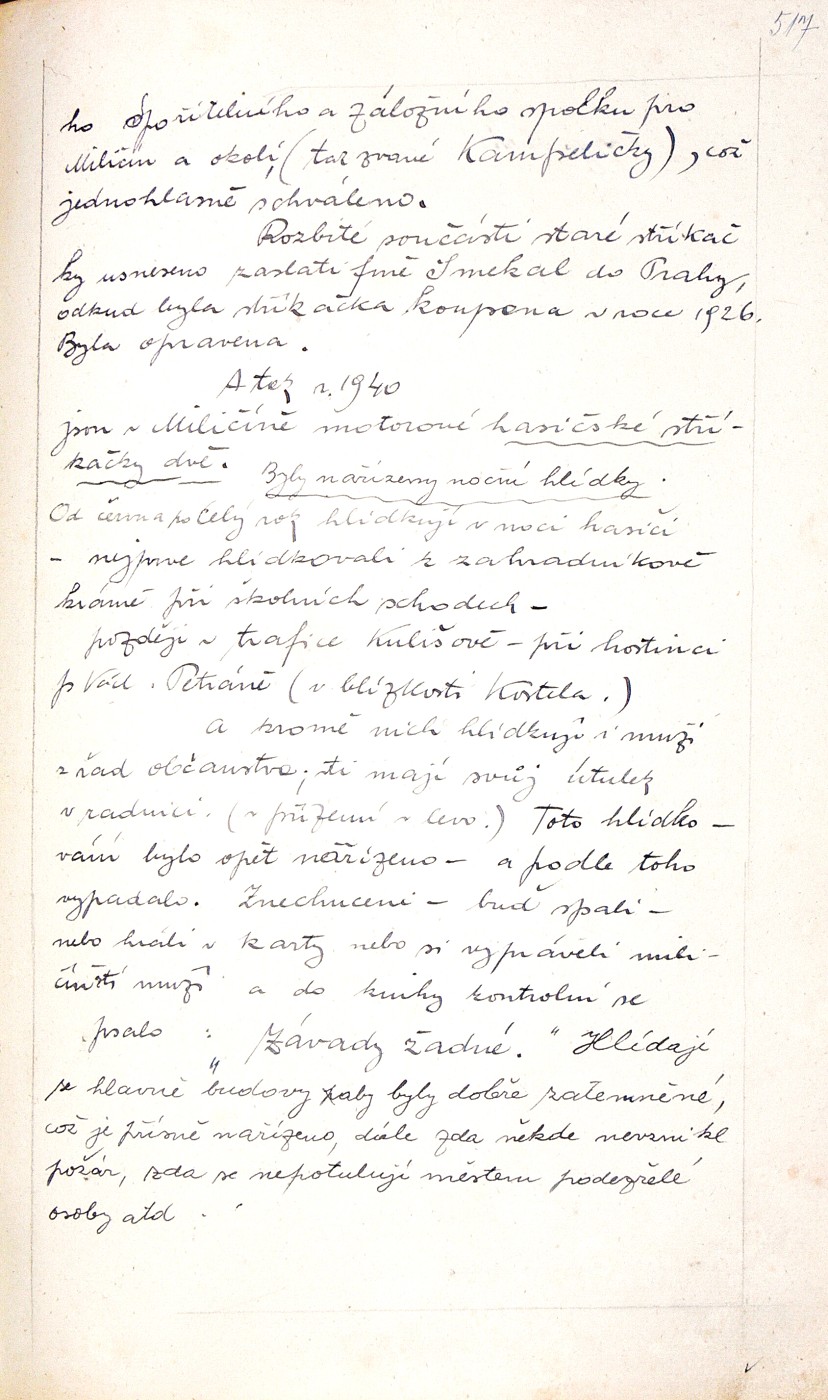 517
ho Spořitelního a záložního spolku pro
Miličín a okolí, (tak zvané Kampeličky), což
jednohlasně schváleno.
Rozbité součásti staré stříkač
ky usneseno zaslati fmě Smekal do Prahy,
odkud byla stříkačka koupena v roce 1926.
Byla opravena.
A tak r. 1940
jsou v Miličíně motorové hasičské stří-
kačky dvě. Byly nařízeny noční hlídky.
Od června po celý rok hlídkují v noci hasiči
- nejprve hlídkovali v zahradníkově
krámě při školních schodech -
později v trafice Kulišově - při hostinci
p Václ. Petráně (v blízkosti Kostela.)
A kromě nich hlídkují i muži
z řad občanstva; ti mají svůj útulek
v radnici. (v přízemí v levo.) Toto hlídko-
vání bylo opět nařízeno - a podle toho
vypadalo. Znechuceni - buď spali -
nebo hráli v karty nebo si vyprávěli mili-
čínští muži a do knihy kontrolní se
psalo : „Závady žádné." Hlídají
se hlavně budovy aby byly dobře zatemněné,
což je přísně nařízeno, dále zda někde nevznikl
požár, zda se nepotulují městem podezřelé
osoby atd.